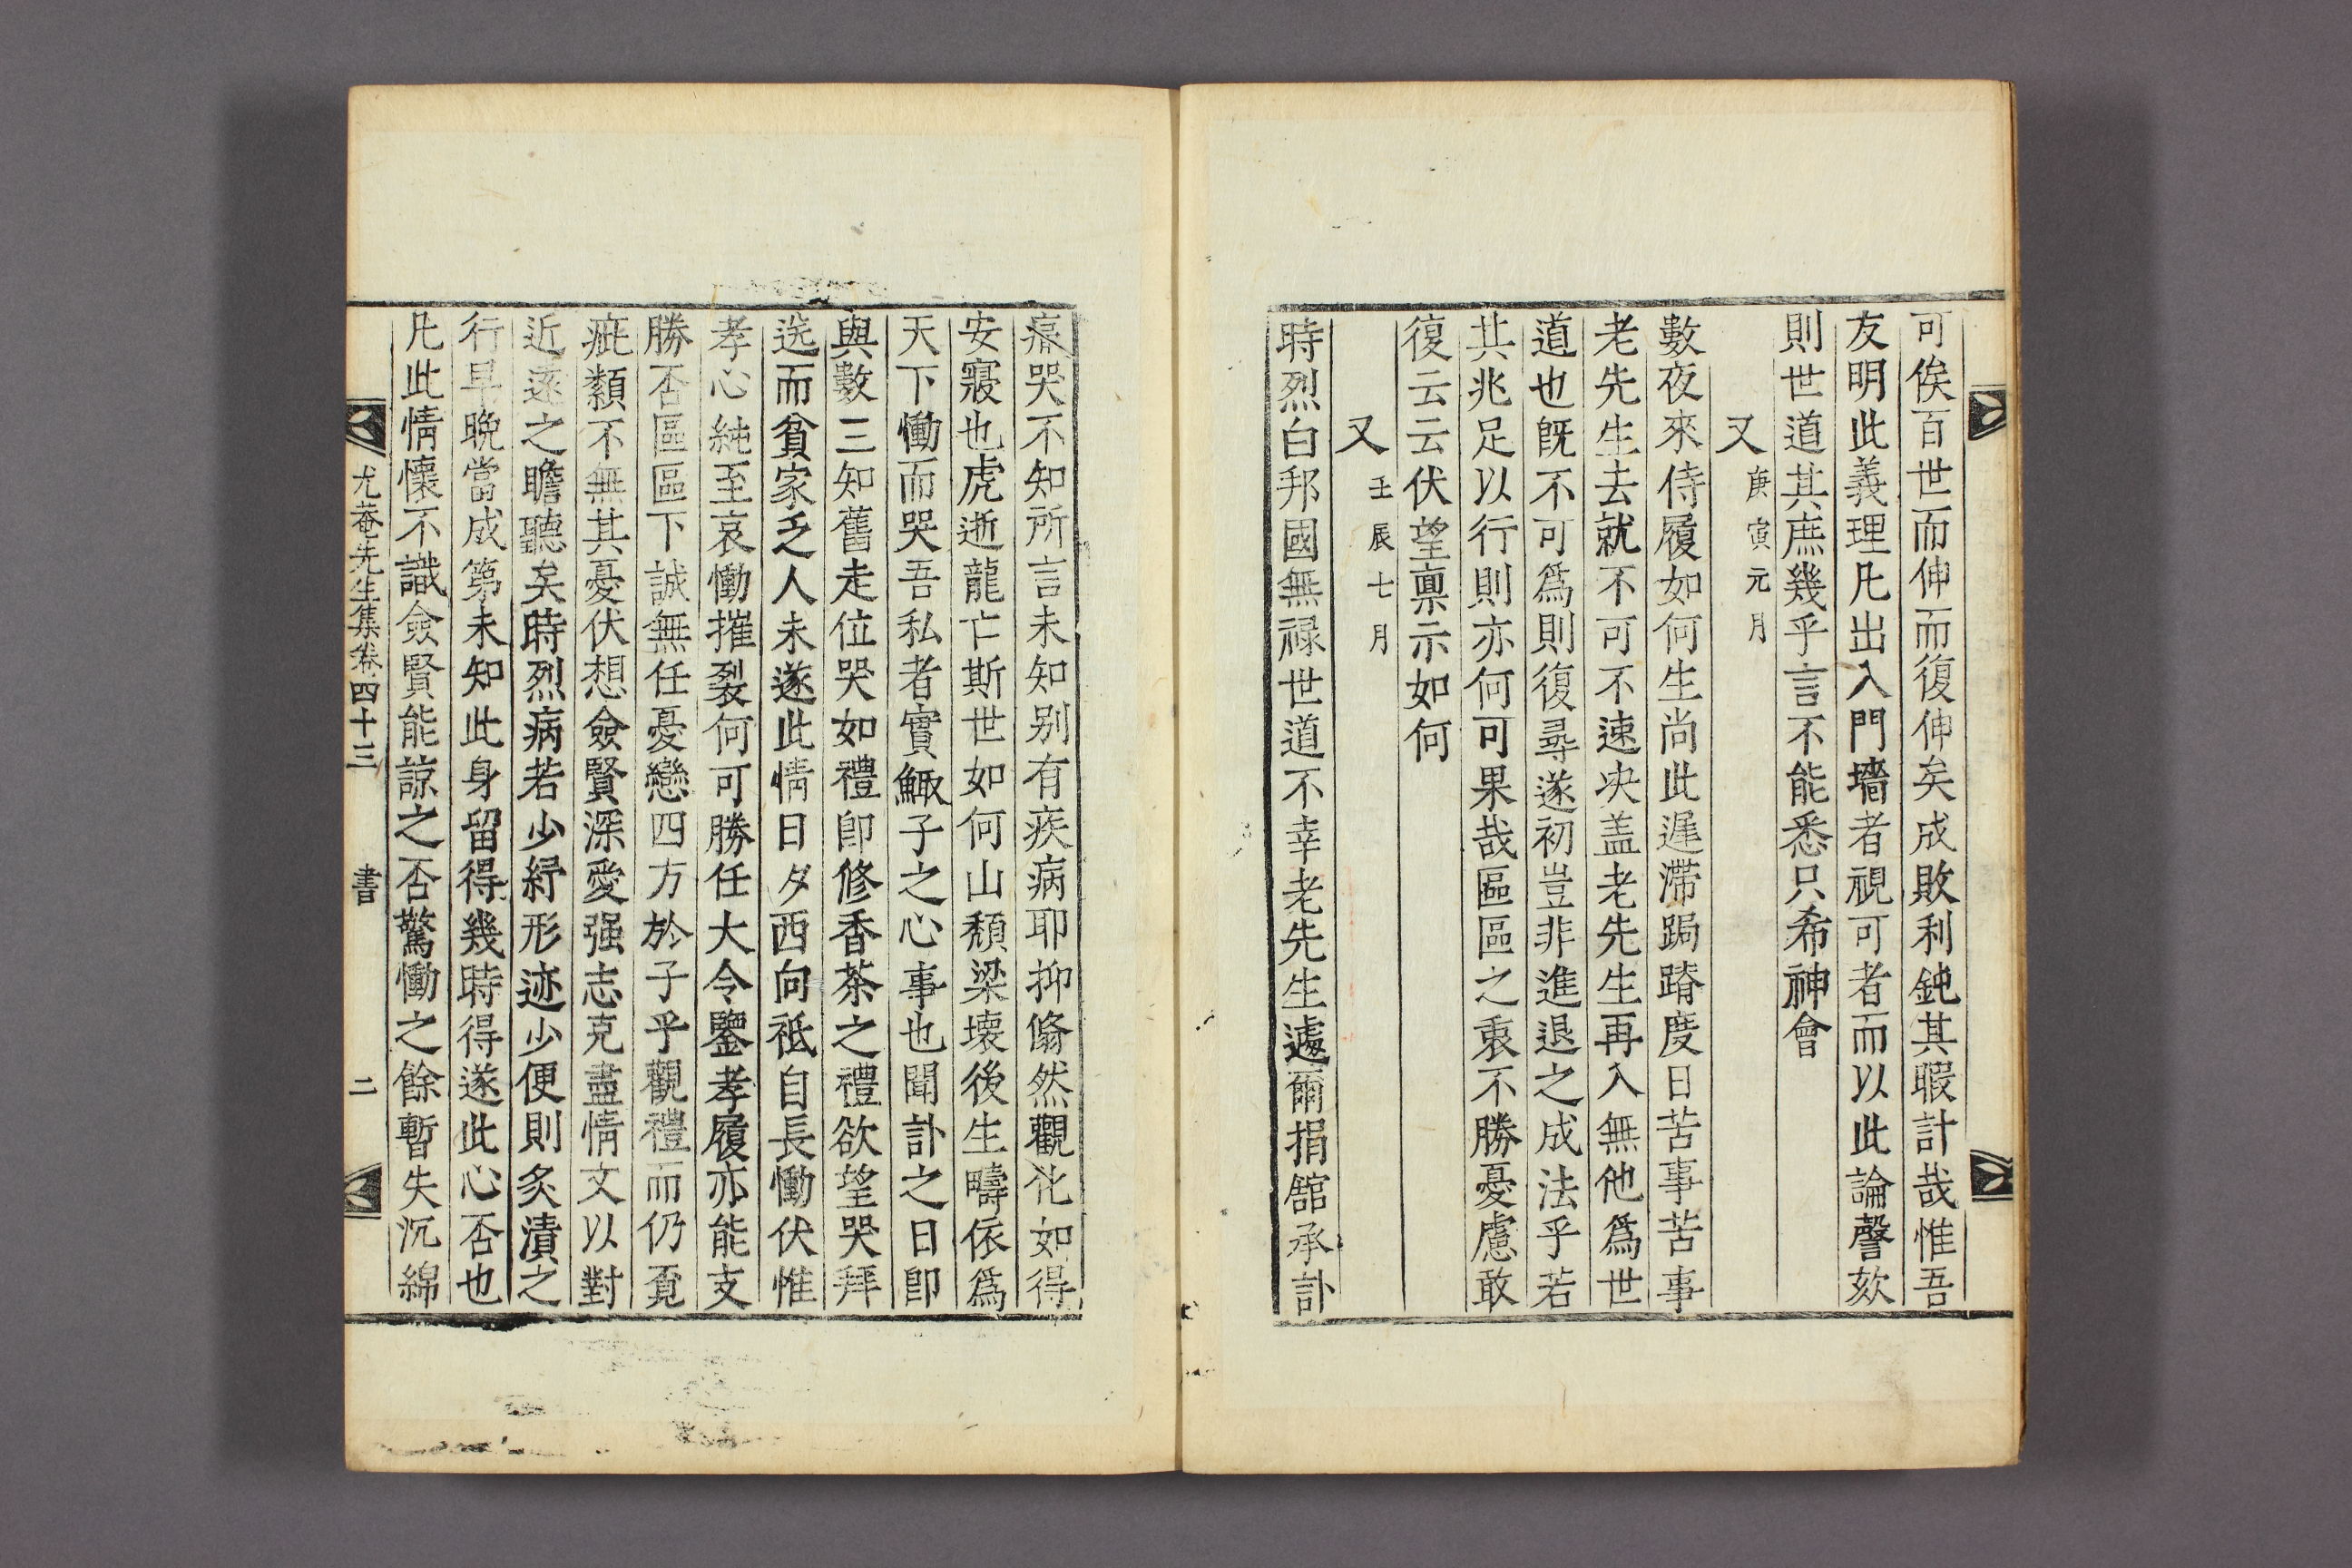 可俟百世而伸而復伸矣成敗利鈍其暇計哉惟吾
友明此義理凡出入門墻者視可者而以此論謦欬
則世道其庶幾乎言不能悉只希神會
又庚寅元月
數夜來侍履如何生尚此遲滯跼蹐度日苦事苦事
老先生去就不可不速决盖老先生再入無他爲世
道也旣不可爲則復尋遂初豈非進退之成法乎若
其兆足以行則亦何可果哉區區之衷不勝憂慮敢
復云云伏望稟示如何
又壬辰七月
時烈白邦國無祿世道不幸老先生遽爾捐舘承訃
痕哭不知所言未知別有疾病耶抑翛然觀化如得
安寢也虎逝龍亡斯世如何山頹梁壞後生疇依爲
天下慟而哭吾私者實鯫子之心事也聞訃之日卽
與數三知舊走位哭如禮卽修香茶之禮欲望哭拜
送而貧家乏人未遂此情日夕西向祇自長慟伏惟
孝心純至哀慟摧裂何可勝任大令鑒孝履亦能支
勝否區區下誠無任憂戀四方於子乎觀禮而仍覔
疵纇不無其憂伏想僉賢深愛强志克盡情文以對
近遠之瞻聽矣時烈病若少紓形迹少便則炙漬之
行早晩當成第未知此身留得幾時得遂此心否也
凡此情懷不識僉賢能諒之否驚慟之餘暫失沉綿
尤菴先生集卷四十三 書 二